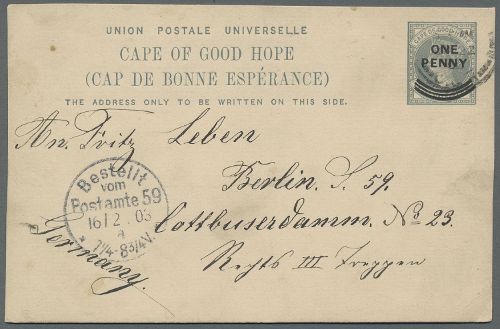 UNION POSTALE UNIVERSELLE
CAPE OF GOOD HOPE
(CAP DE BONNE ESPÉRANCE)
THE ADDRESS ONLY TO BE WRITTEN ON THIS SIDE.
CAPE OF GOOD HOPE
ONE
PENNY
An Fritz Leben
Berlin. S. 59.
Cottbuserdamm. No 23.
Rechts III Treppen
Germany.
Bestellt
vom
Postamte 59
16/2 03
7 1/4-8 3/4 V.